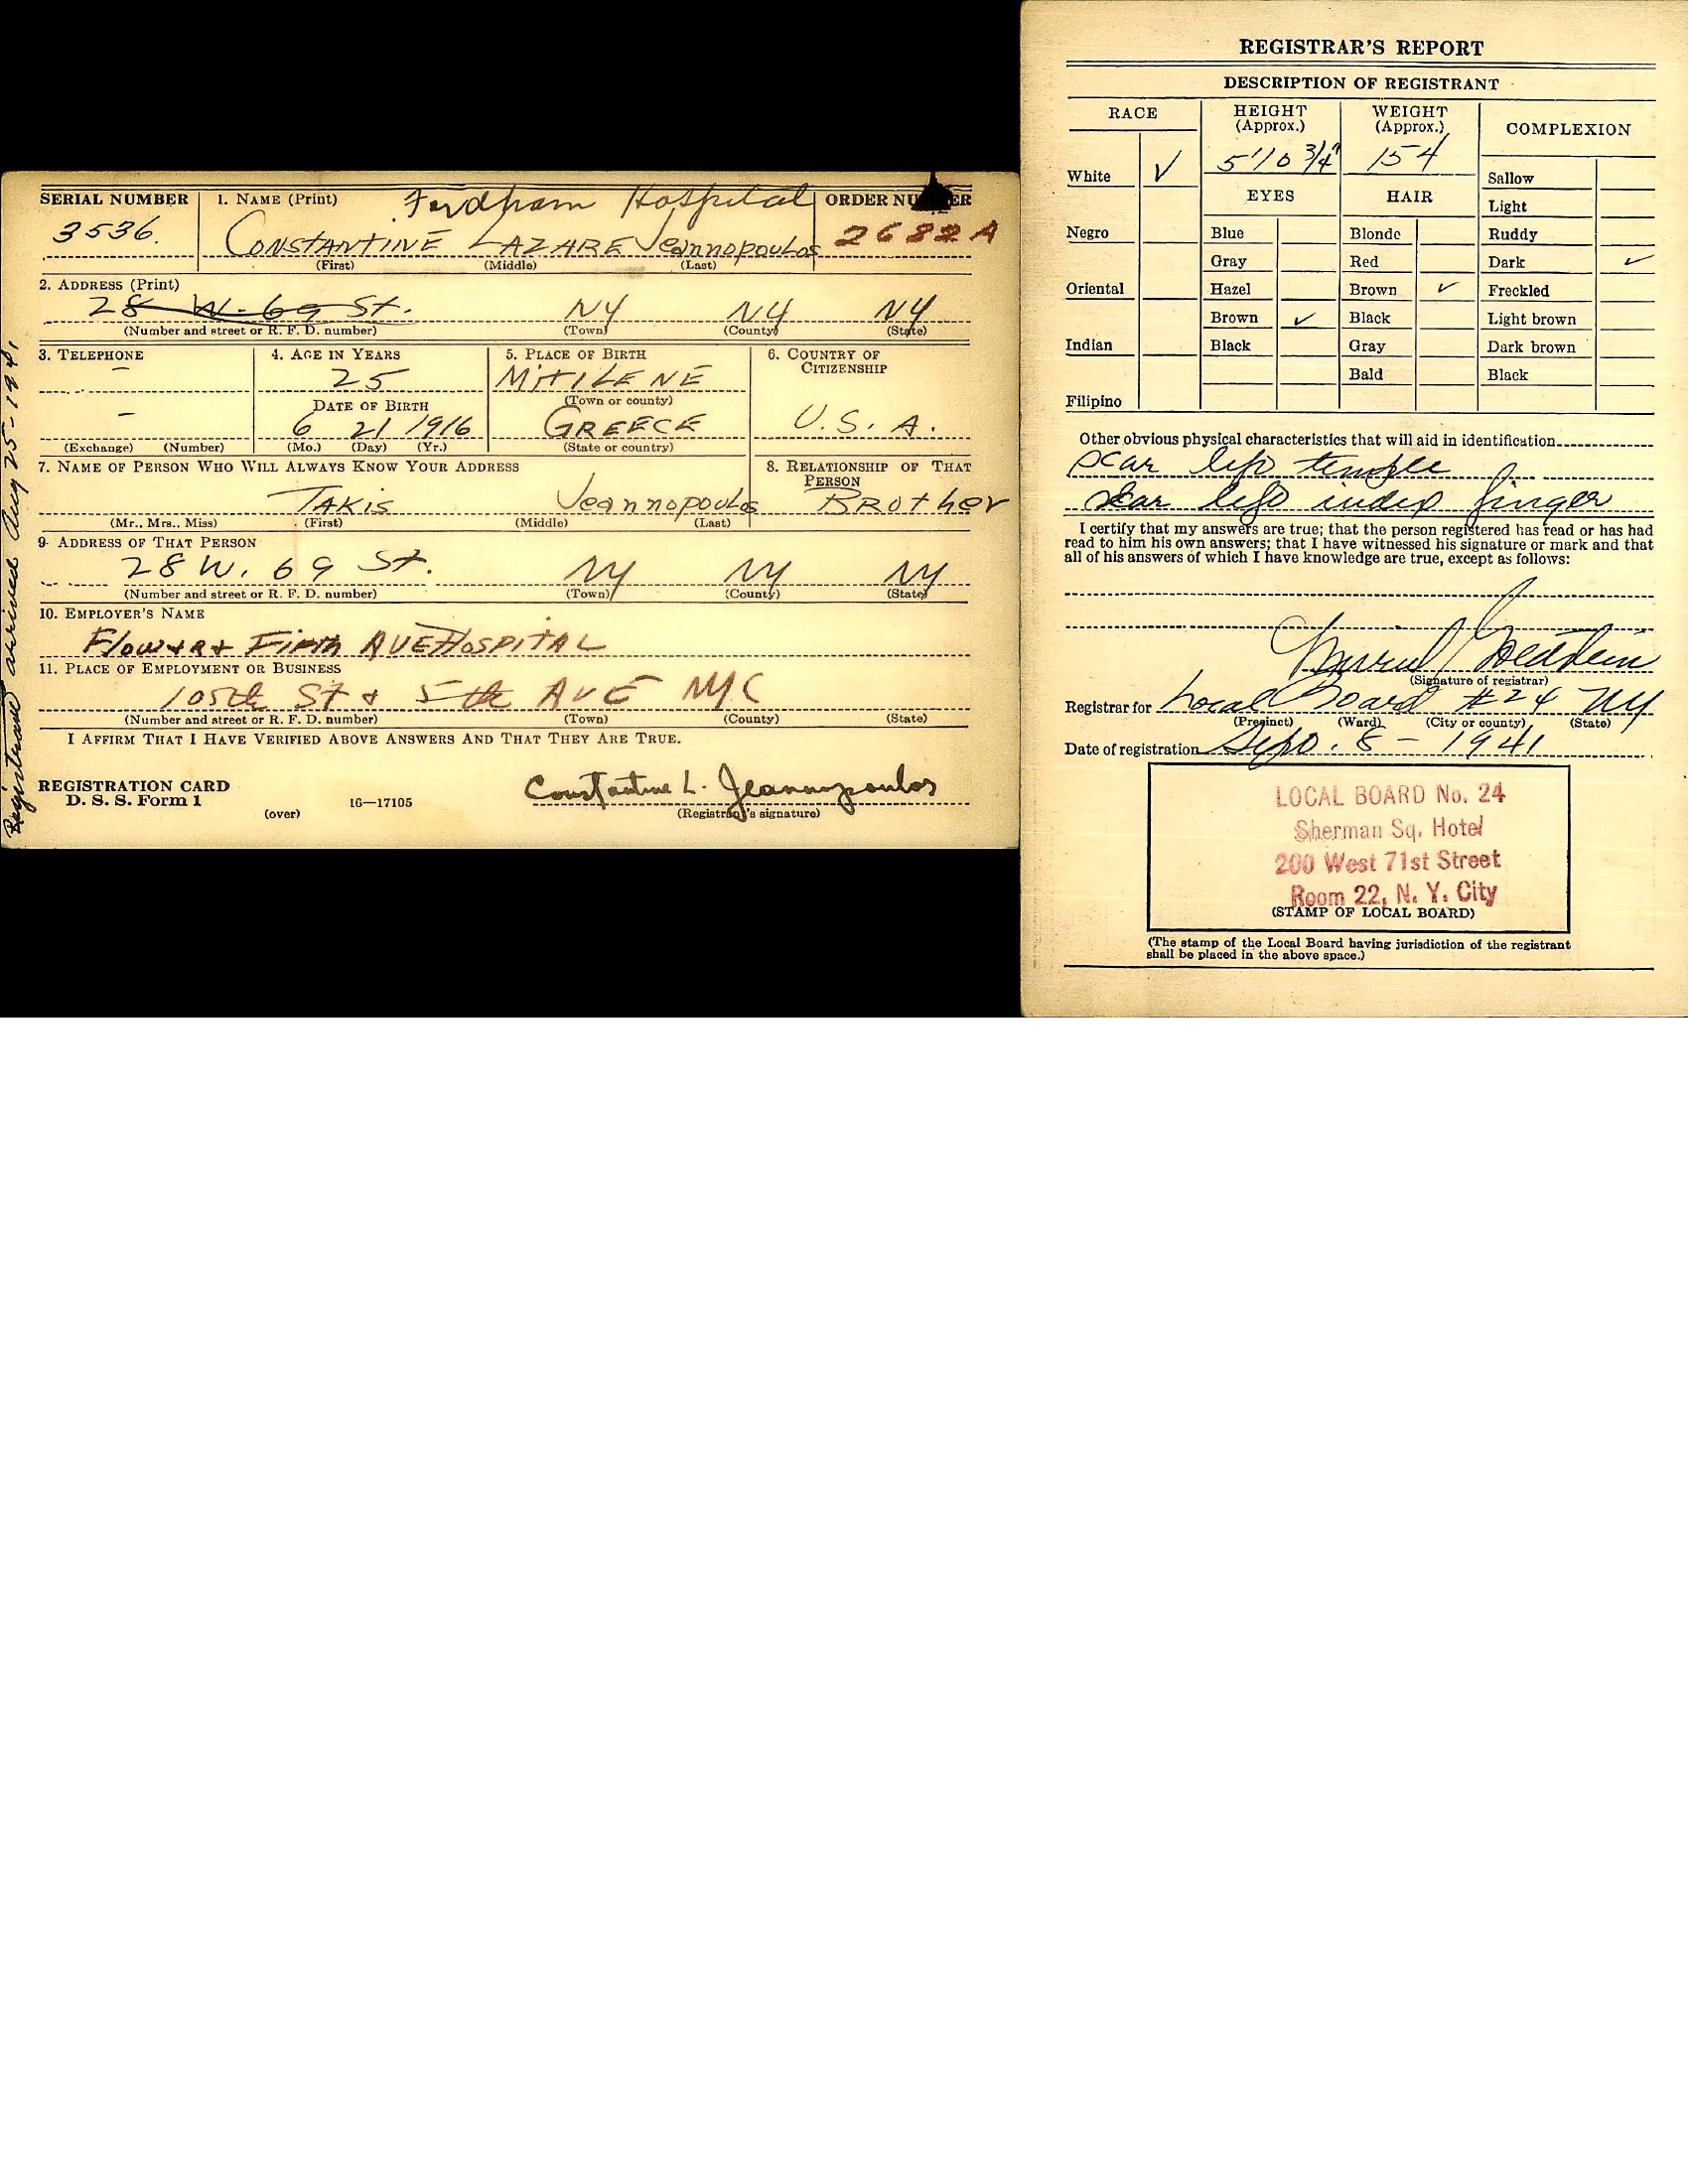 SERIAL NUMBER 1. NAME (Print) Fordham Hospital ORDER NUMBER
3536. CONSTANTINE LAZARE Jeannopoulos 2682A
(First) (Middle) (Last)
2. ADDRESS (Print)
28 W. 69 St. NY NY NY
(Number and street or R. F. D. number) (Town) (County) (State)
3. TELEPHONE 4. AGE IN YEARS 5. PLACE OF BIRTH 6. COUNTRY OF
CITIZENSHIP
– 25 MITILENE
DATE OF BIRTH (Town or county)
– 6 21 1916 GREECE U.S.A.
(Exchange) (Number) (Mo.) (Day) (Yr.) (State or country)
7. NAME OF PERSON WHO WILL ALWAYS KNOW YOUR ADDRESS 8. RELATIONSHIP OF THAT
PERSON
TAKIS Jeannopoulos BROTHER
(Mr., Mrs., Miss) (First) (Middle) (Last)
9. ADDRESS OF THAT PERSON
28 W. 69 St. NY NY NY
(Number and street or R. F. D. number) (Town) (County) (State)
10. EMPLOYER'S NAME
Flower & Fifth AVE HOSPITAL
11. PLACE OF EMPLOYMENT OR BUSINESS
105th St & 5th AVE NYC
(Number and street or R. F. D. number) (Town) (County) (State)
I AFFIRM THAT I HAVE VERIFIED ABOVE ANSWERS AND THAT THEY ARE TRUE.
REGISTRATION CARD
D. S. S. Form 1 16—17105 Constantine L. Jeannopoulos
(over) (Registrant's signature)
Registrant arrived Aug 25-1941
REGISTRAR'S REPORT
DESCRIPTION OF REGISTRANT
RACE HEIGHT WEIGHT COMPLEXION
(Approx.) (Approx.)
White ✓ 5'10 3/4" 154 Sallow
EYES HAIR Light
Negro Blue Blonde Ruddy
Gray Red Dark ✓
Oriental Hazel Brown ✓ Freckled
Brown ✓ Black Light brown
Indian Black Gray Dark brown
Bald Black
Filipino
Other obvious physical characteristics that will aid in identification
scar left temple
scar left index finger
I certify that my answers are true; that the person registered has read or has had
read to him his own answers; that I have witnessed his signature or mark and that
all of his answers of which I have knowledge are true, except as follows:
(Signature of registrar)
Registrar for Local Board #24 NY
(Precinct) (Ward) (City or county) (State)
Date of registration Sept. 8 - 1941
LOCAL BOARD No. 24
Sherman Sq. Hotel
200 West 71st Street
Room 22, N. Y. City
(STAMP OF LOCAL BOARD)
(The stamp of the Local Board having jurisdiction of the registrant
shall be placed in the above space.)